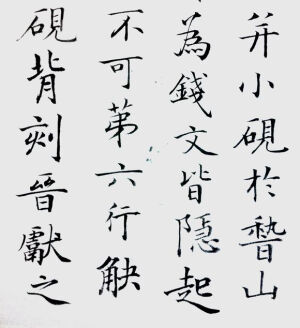 并小硯於瞽山
為錢文皆隱起
不可第六行觖
硯背刻晉獻之